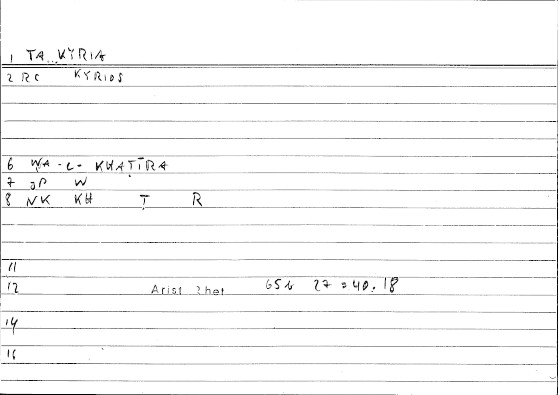 1 TA KYRIA
2 RC KYRIOS
6 WA-L-KHAṬĪRA
7 JP W
8 NK KH Ṭ R
11
12 Arist Rhet 65b 27 = 40.18
14
16